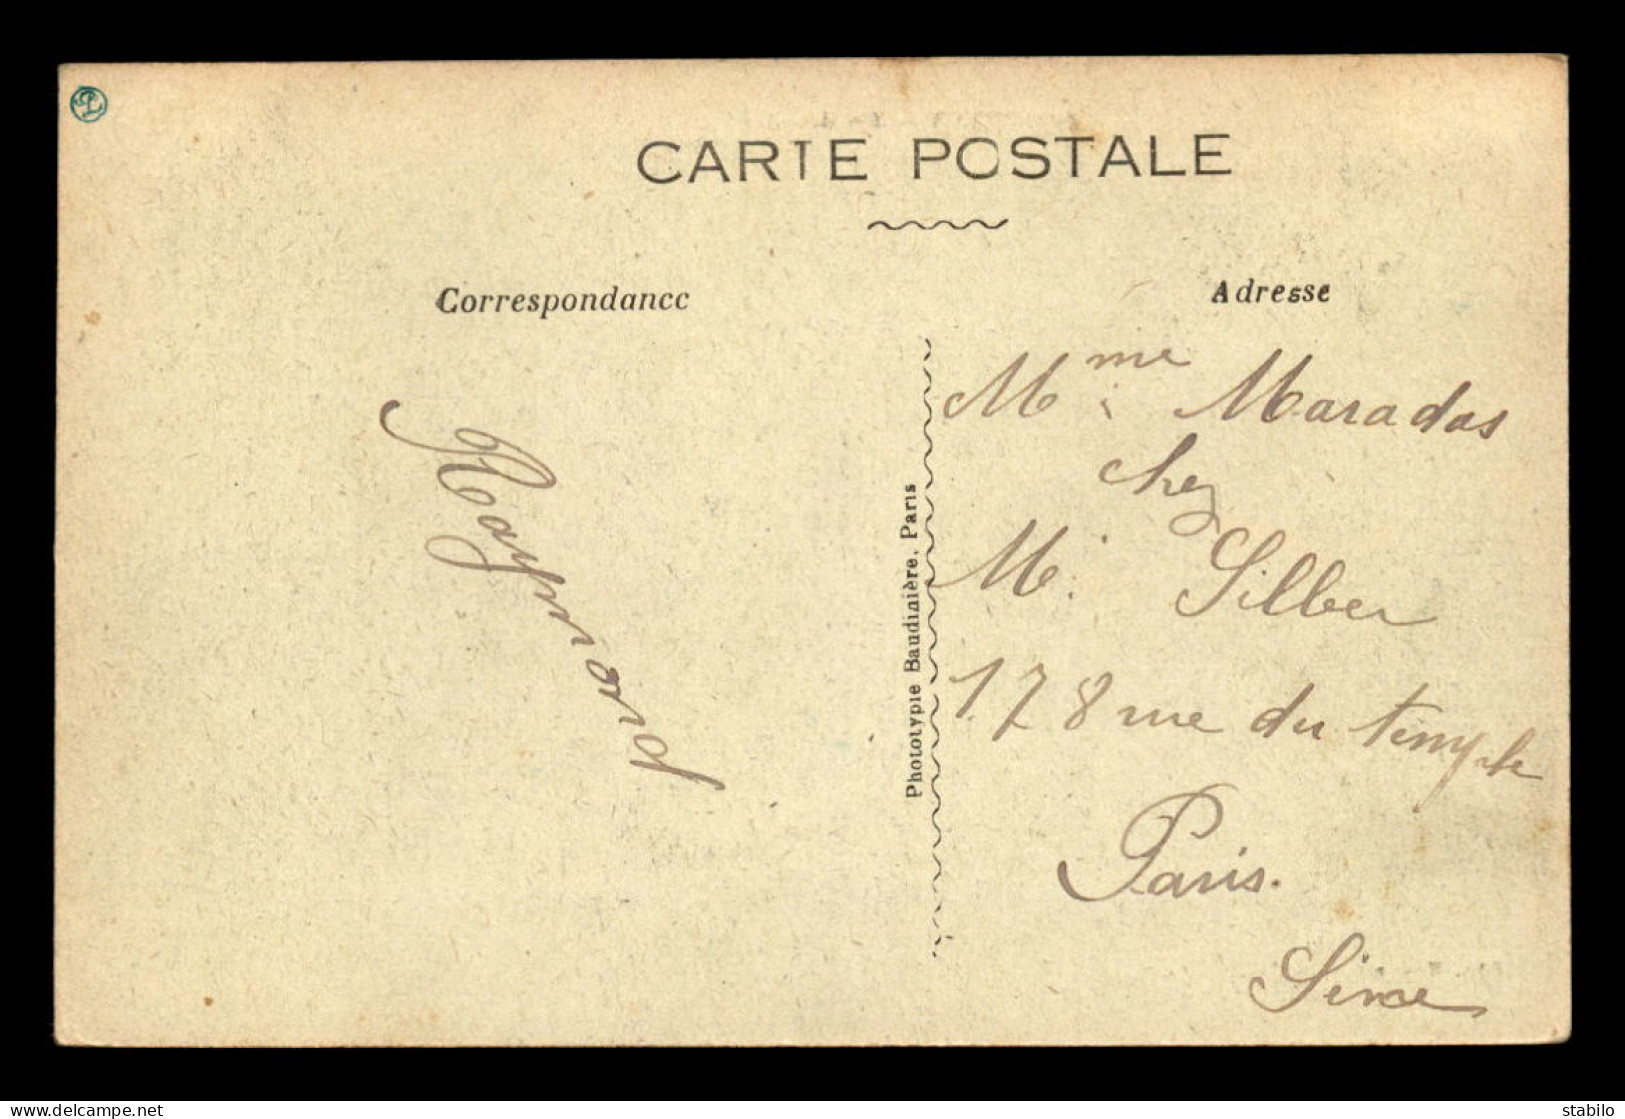 CARTE POSTALE
Correspondance
Raymond
Phototypie Baudinière, Paris
Adresse
Mme Maradas
chez
M. Silber
178 rue du temple
Paris.
Seine
www.delcampe.net
stabilo